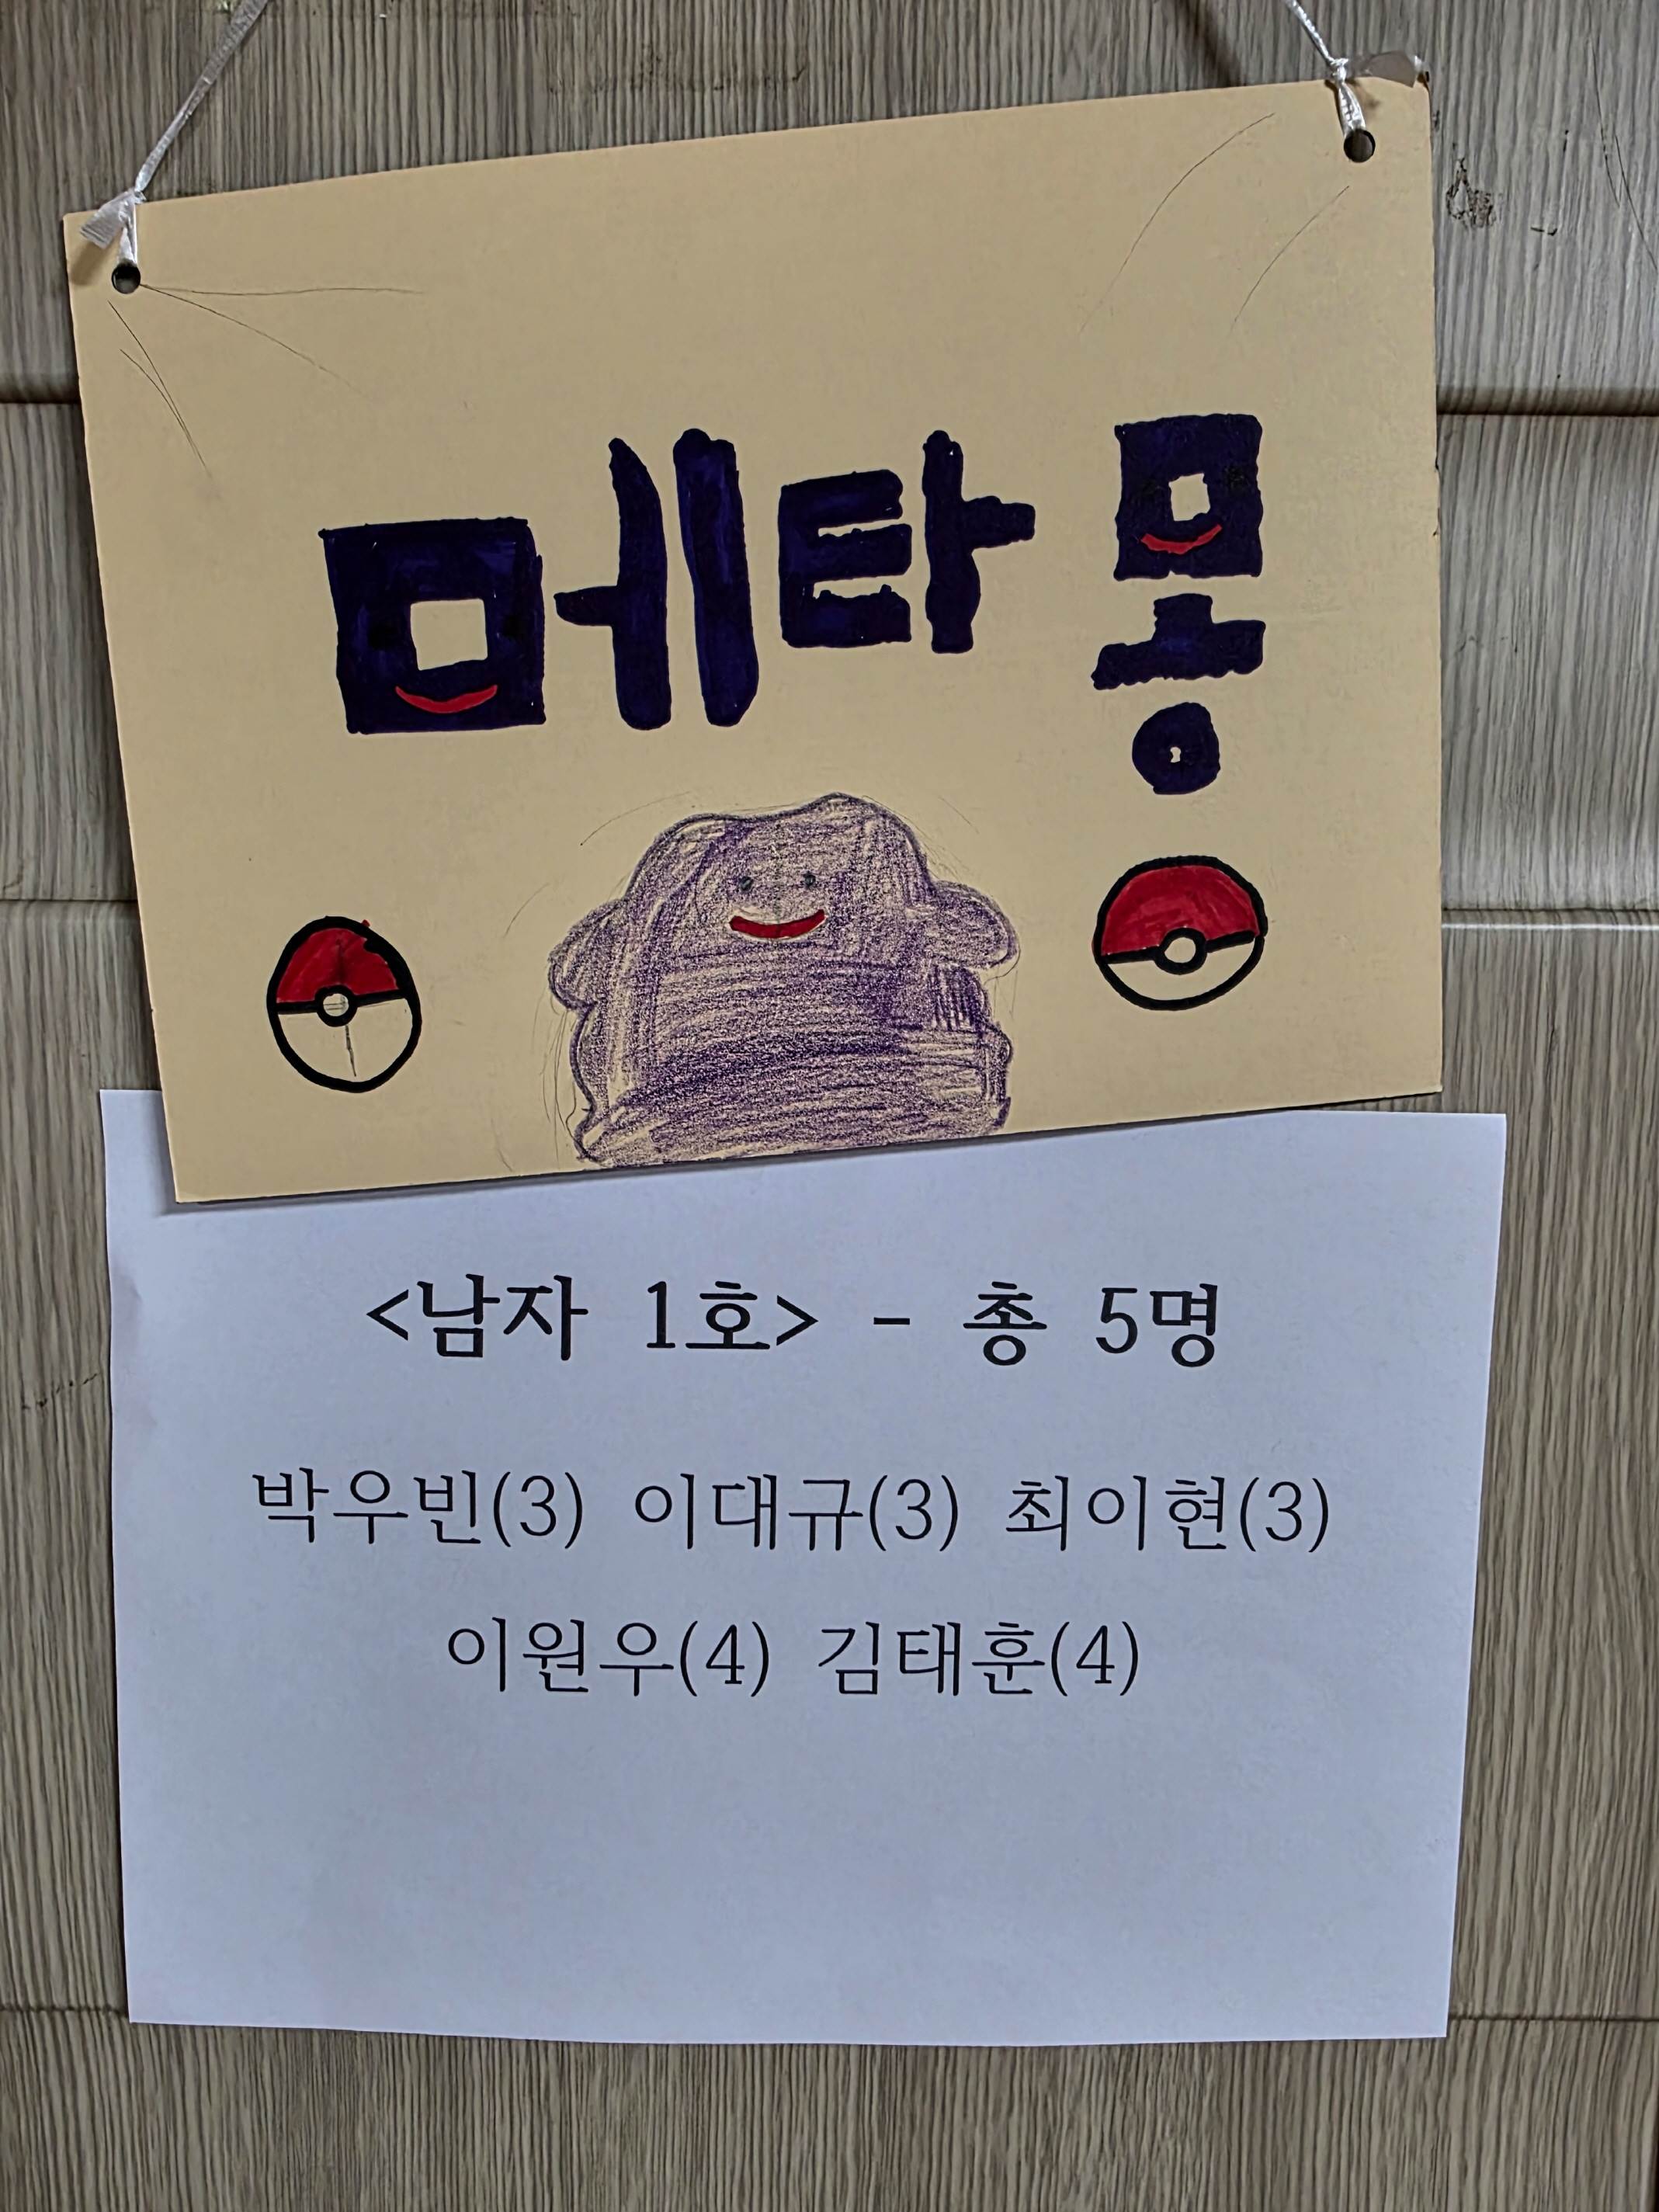 메타몽
<남자 1호> - 총 5명
박우빈(3) 이대규(3) 최이현(3)
이원우(4) 김태훈(4)